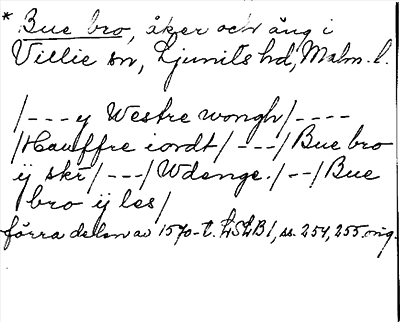 * Bue bro, åker och äng i
Villie sn, Ljunits hd, Malm. l.
/---y Westre wongh/----
/Hauffre iordt/---/Bue bro
ij skr/---/Wdenge./--/Bue
bro ij les/
förra delen av 1570-t. LSLB1, ss. 254, 255. orig.